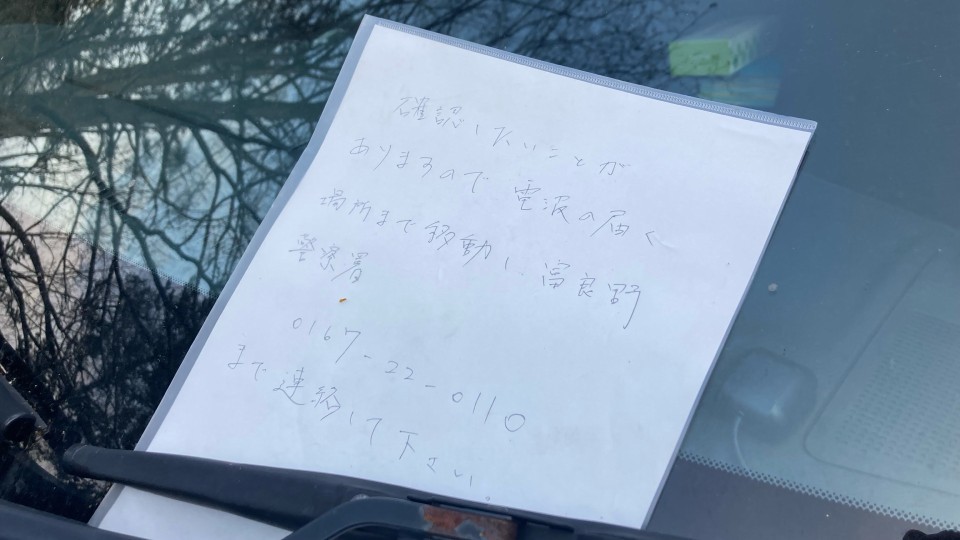 確認したいことが
ありますので電波の届く
場所まで移動し、富良野
警察署
0167-22-0110
まで連絡して下さい。